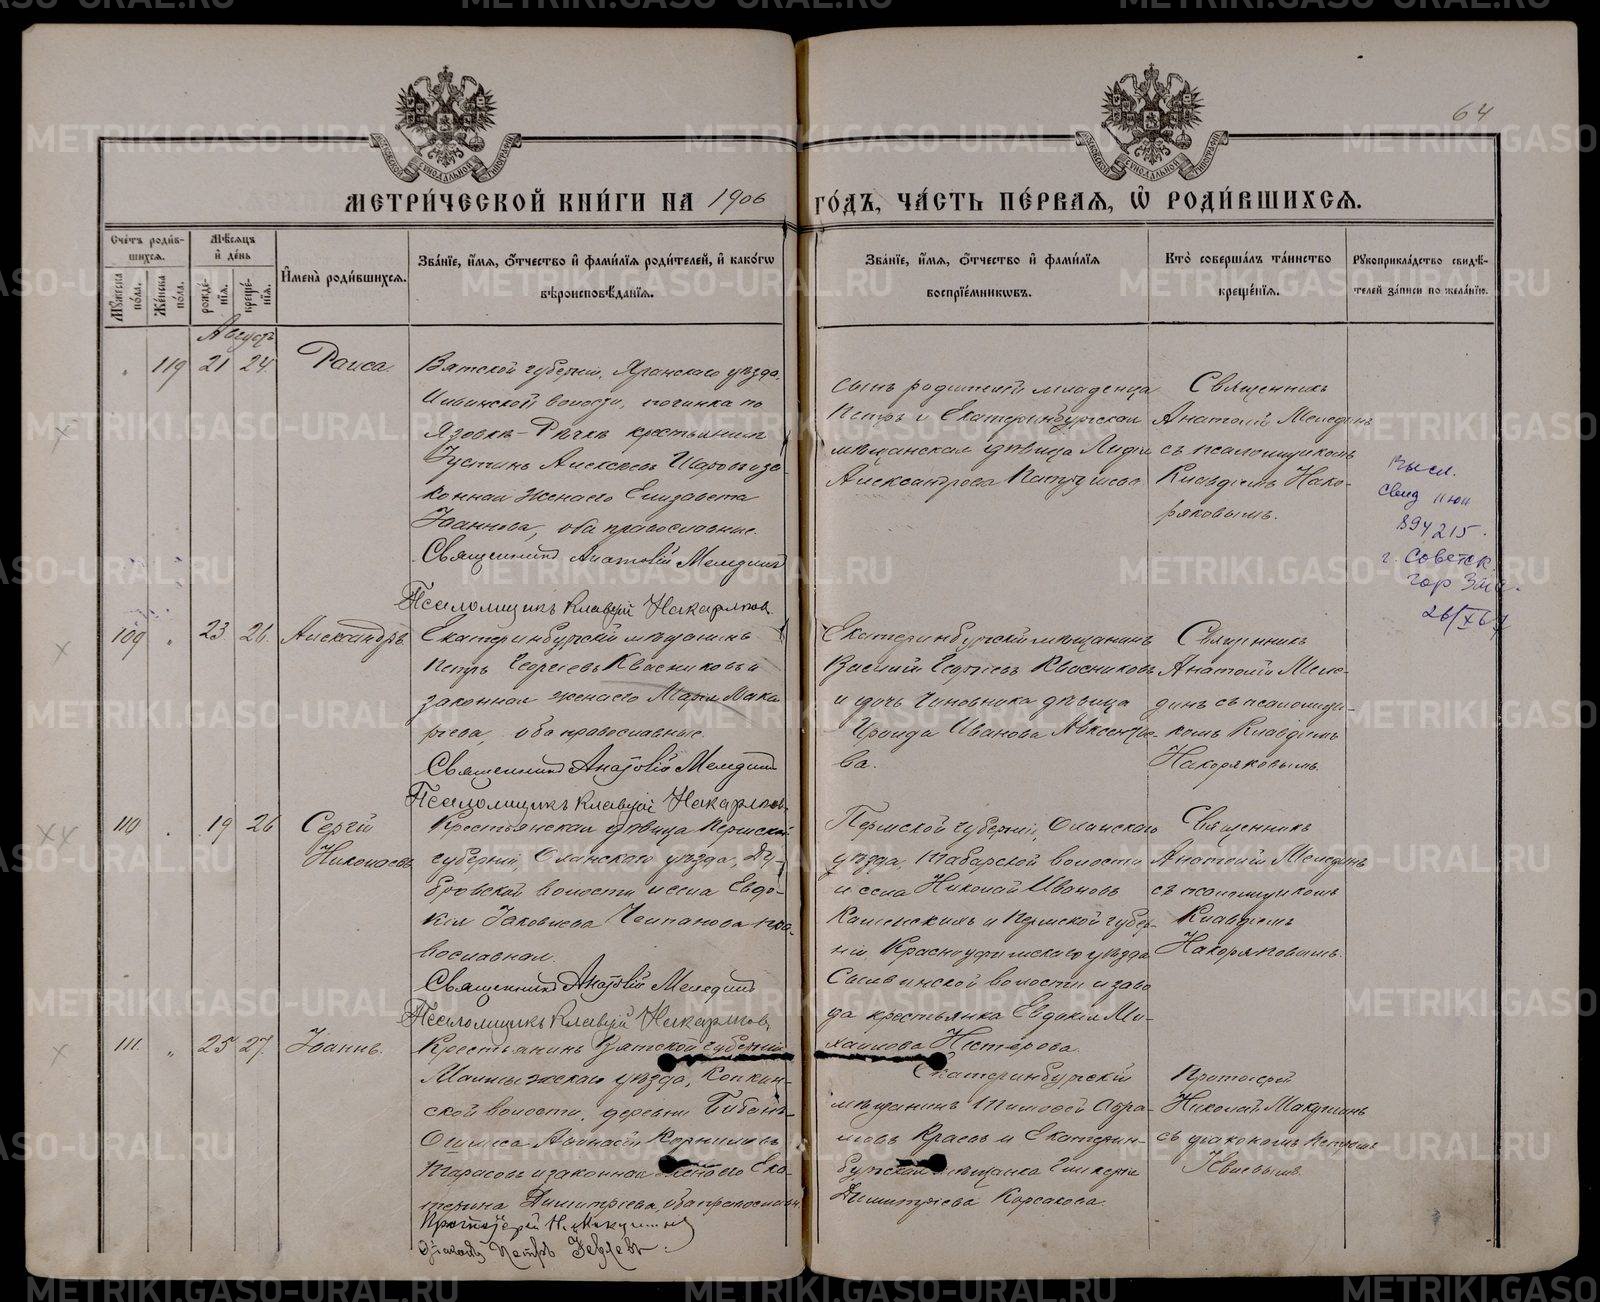 64
МЕТРИ́ЧЕСКОЙ КНИ́ГИ НА 1906 ГО́ДЪ, ЧА́СТЬ ПЕ́РВАЯ, Ѡ҆ РОДИ́ВШИХСЯ.
Сче́тъ роди́вшихся.
Мꙋ́жеска по́ла.
Же́нска по́ла.
Мѣ́сяцъ и҆ де́нь
рожде́нїя.
креще́нїя.
И҆мена̀ роди́вшихся.
Зва́нїе, и҆́мя, ѻ҆́тчество и҆ фами́лїя роди́телей, и҆ како́гѡ
вѣроисповѣ́данїя.
Зва́нїе, и҆́мя, ѻ҆́тчество и҆ фами́лїя
воспрїе́мникѡвъ.
Кто̀ соверша́лъ та́инство
креще́нїя.
Рꙋкоприкла́дство свидѣ́телей за́писи по жела́нїю.
Августъ
119 21 24. Раиса
Вятской губерніи, Яранскаго уѣзда,
волости, починка по
Рѣчкѣ крестьянинъ
Іустинъ Алексѣевъ за-
конная жена его Елизавета
Іоаннова, оба православные.
Священникъ Анатолій Мелединъ
Псаломщикъ Клавдій Накаряков.
сынъ родителей младенца
Петръ и Екатеринбургская
мѣщанская дѣвица Лидія
Александрова
Священникъ
Анатолій Мелединъ
съ псаломщикомъ
Клавдіемъ Нако-
ряковымъ.
Высл.
Свид
894215.
г. Советск
гор
109 23 26. Александръ.
Екатеринбургскій мѣщанинъ
Петръ Георгіевъ Квасниковъ и
законная жена его Марія Мака-
рьева, оба православные.
Священникъ Анатолій Мелединъ
Псаломщикъ Клавдій Накаряков.
Екатеринбургскій мѣщанинъ
Василій Георгіевъ Квасниковъ
и дочь чиновника дѣвица
Ираида Иванова Авксентье-
ва.
Священникъ
Анатолій Меле-
динъ съ псаломщи-
комъ Клавдіемъ
Накоряковымъ.
110 19 26 Сергій
Николаевъ
Крестьянская дѣвица Пермской
губерніи, Оханскаго уѣзда, Ду-
бровской волости и села Евдо-
кія Іаковлева Чолпанова пра-
вославная.
Священникъ Анатолій Мелединъ
Псаломщикъ Клавдій Накаряков.
Пермской губерніи, Оханскаго
уѣзда, Табарской волости
и села Николай Ивановъ
Каменскихъ и Пермской губер-
ніи, Красноуфимскаго уѣзда
Сылвинской волости и заво-
да крестьянка Евдокія Ми-
хаилова Нестерова.
Священникъ
Анатолій Мелединъ
съ псаломщикомъ
Клавдіемъ
Накоряковымъ.
111. 25 27. Іоаннъ.
Крестьянинъ Вятской губерніи
Малмыжскаго уѣзда, Копкин-
ской волости, деревни
Аѳанасій Корниловъ
Тарасовъ и законная жена его Ека-
терина Димитріева, оба православн.
Протоіерей Н. Макушинъ
діаконъ Петръ Іевлевъ.
Екатеринбургскій
мѣщанинъ Тимоѳей Абра-
мовъ Красовъ и Екатерин-
бургская мѣщанка Гликерія
Димитріева Корсакова.
Протоіерей
Николай Макушинъ
съ діакономъ Петромъ
Іевлевымъ.
METRIKI.GASO-URAL.RU